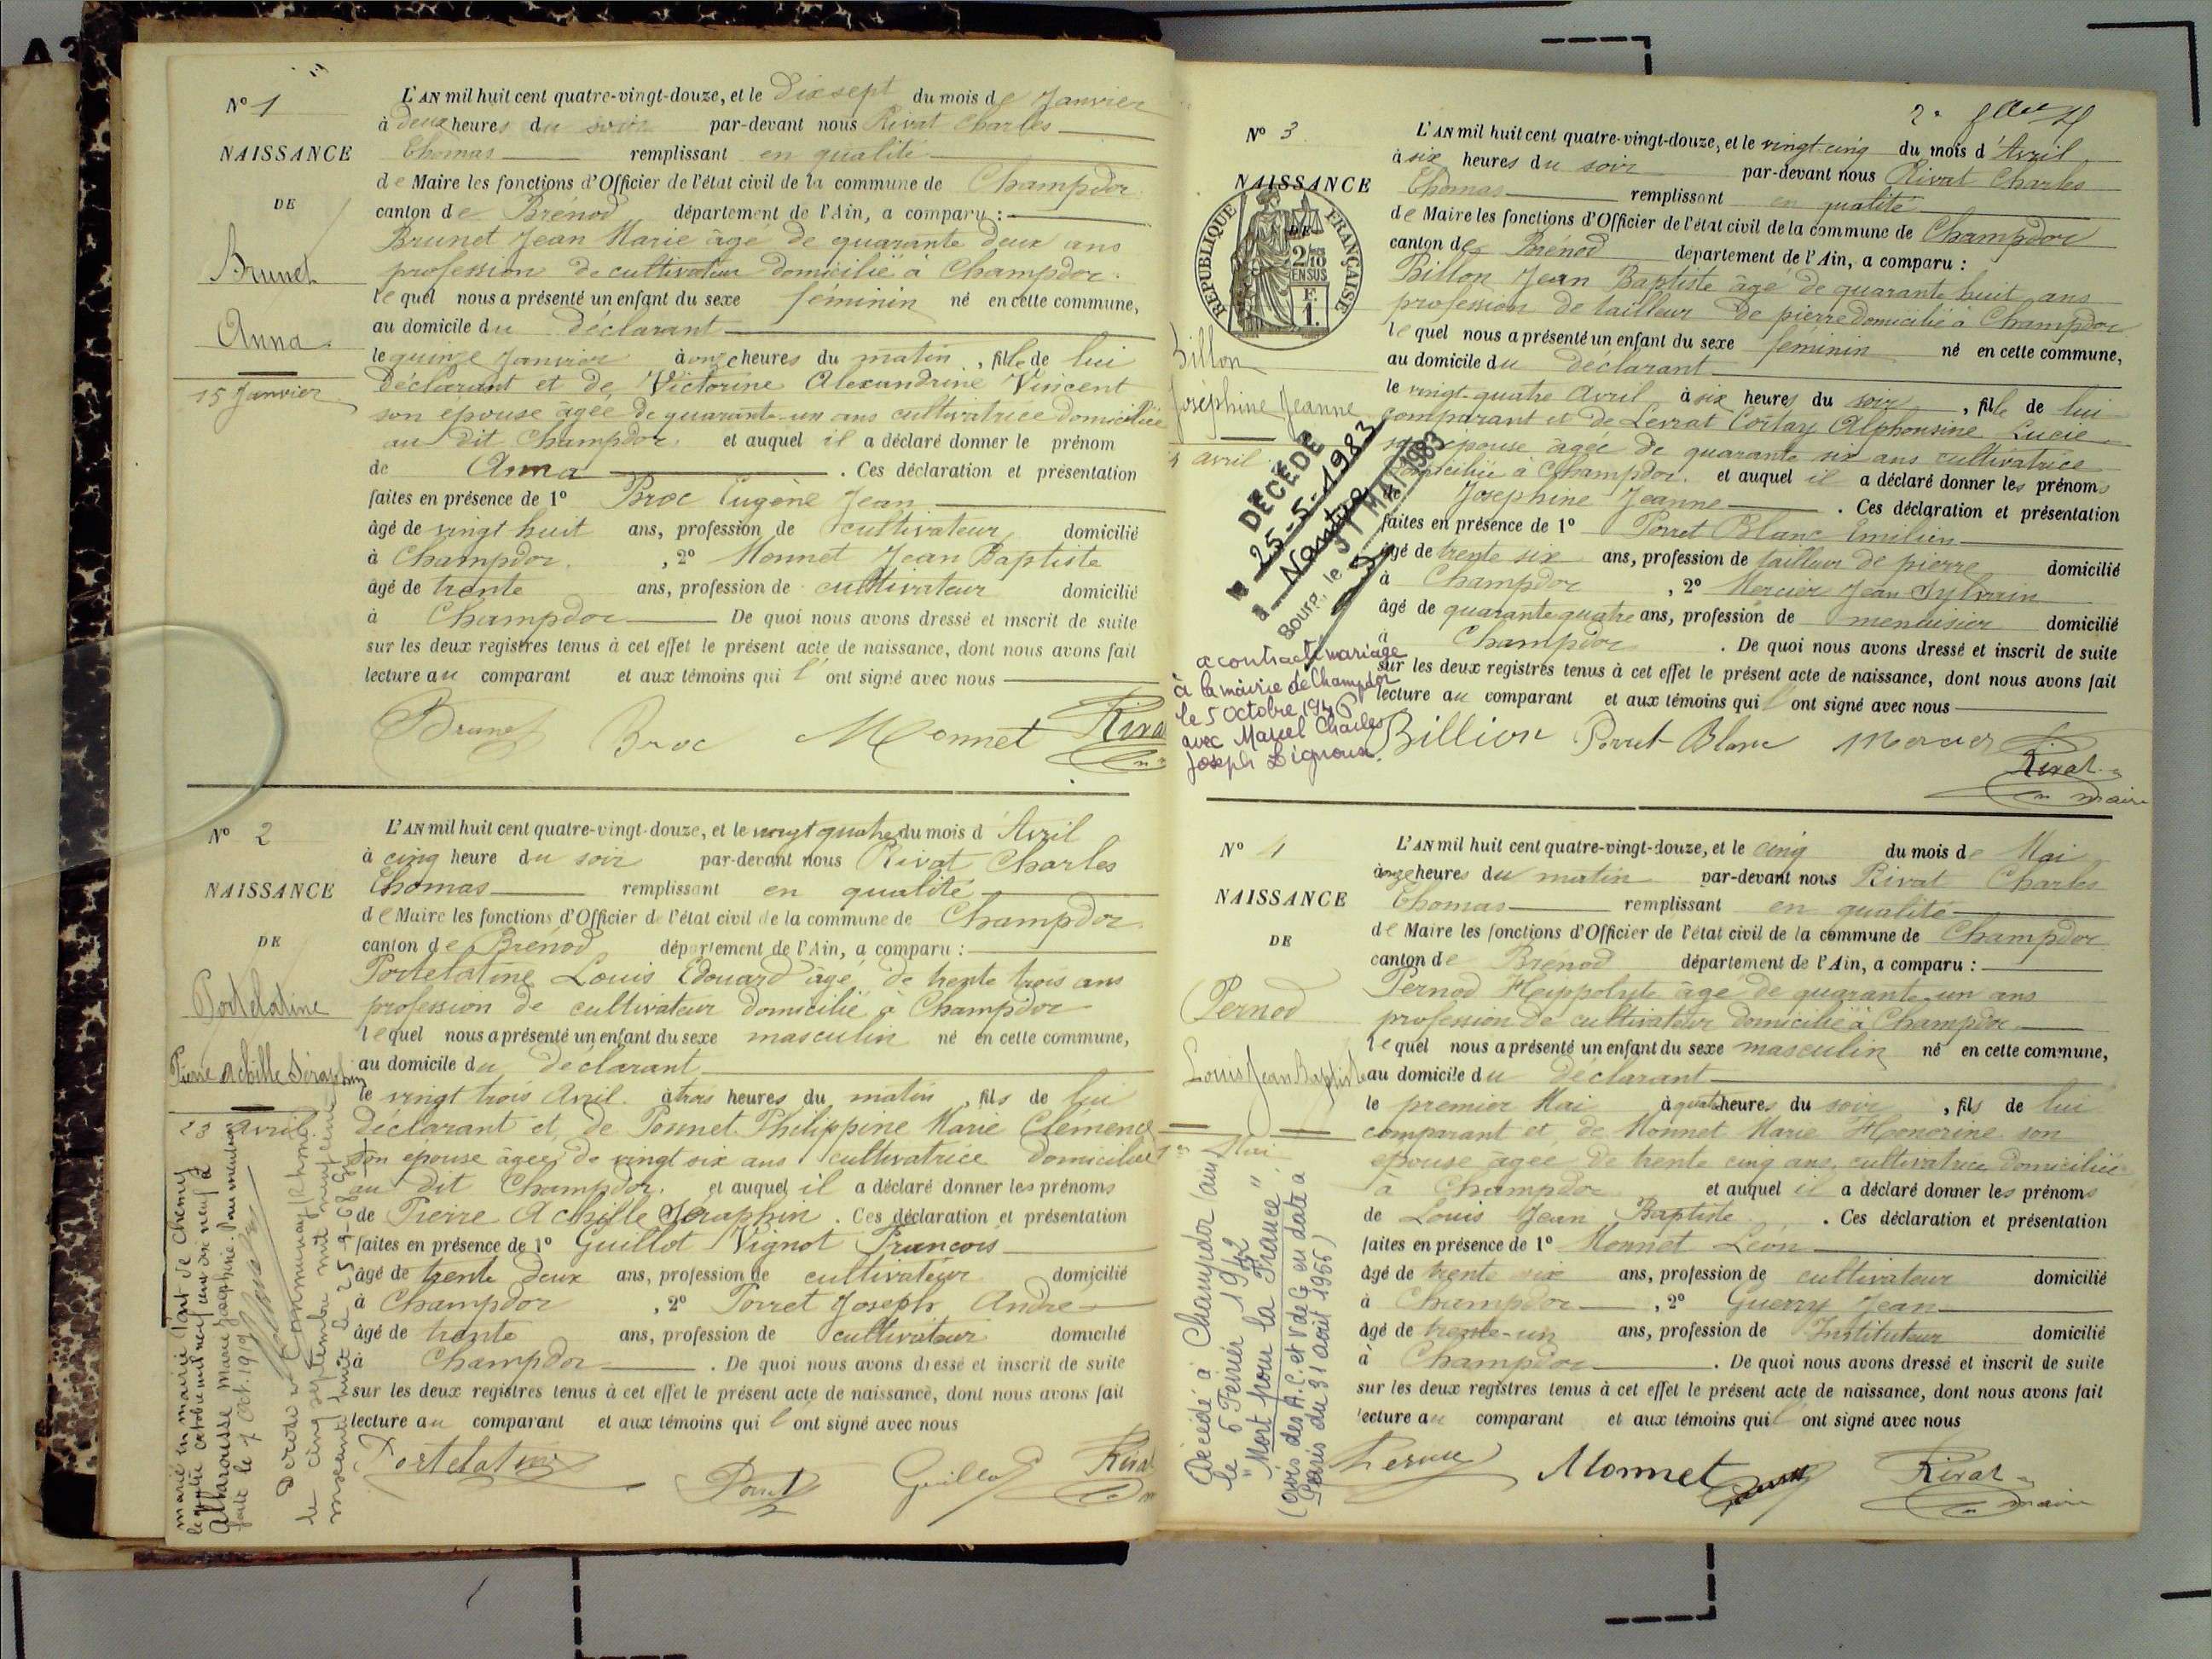 N° 1
NAISSANCE
DE
Brunet
Anna
15 Janvier
L'AN mil huit cent quatre-vingt-douze, et le Dix sept du mois de Janvier
à deux heures du soir par-devant nous Rivat Charles
Thomas remplissant en qualité
de Maire les fonctions d'Officier de l'état civil de la commune de Champdor
canton de Brénod département de l'Ain, a comparu :
Brunet Jean Marie âgé de quarante deux ans
profession de cultivateur domicilié à Champdor
lequel nous a présenté un enfant du sexe féminin né en cette commune,
au domicile du déclarant
le quinze Janvier à onze heures du matin, fille de lui
Déclarant et de Victorine Alexandrine Vincent
son épouse âgée de quarante-un ans cultivatrice domiciliée
au dit Champdor. et auquel il a déclaré donner le prénom
de Anna. Ces déclaration et présentation
faites en présence de 1° Broc Eugène Jean
âgé de vingt huit ans, profession de cultivateur domicilié
à Champdor, 2° Monnet Jean Baptiste
âgé de trente ans, profession de cultivateur domicilié
à Champdor De quoi nous avons dressé et inscrit de suite
sur les deux registres tenus à cet effet le présent acte de naissance, dont nous avons fait
lecture au comparant et aux témoins qui l'ont signé avec nous
Brunet Broc Monnet Riva
N° 2
NAISSANCE
DE
Portelatine
Pierre Achille Séraphin
23 avril
L'AN mil huit cent quatre-vingt-douze, et le vingt quatre du mois d'Avril
à cinq heure du soir par-devant nous Rivat Charles
Thomas remplissant en qualité
de Maire les fonctions d'Officier de l'état civil de la commune de Champdor
canton de Brénod département de l'Ain, a comparu :
Portelatine Louis Edouard âgé de trente trois ans
profession de cultivateur domicilié à Champdor
lequel nous a présenté un enfant du sexe masculin né en cette commune,
au domicile du déclarant
le vingt trois Avril à trois heures du matin, fils de lui
déclarant et de Ponnet Philippine Marie Clémence
son épouse âgée de vingt six ans cultivatrice domiciliée
au dit Champdor. et auquel il a déclaré donner les prénoms
de Pierre Achille Séraphin. Ces déclaration et présentation
faites en présence de 1° Guillot Vignot François
âgé de trente deux ans, profession de cultivateur domicilié
à Champdor, 2° Porret Joseph André
âgé de trente ans, profession de cultivateur domicilié
à Champdor. De quoi nous avons dressé et inscrit de suite
sur les deux registres tenus à cet effet le présent acte de naissance, dont nous avons fait
lecture au comparant et aux témoins qui l'ont signé avec nous
Portelatine Porret Guillot Riva
marié en mairie
Albarousse Marie
faite le 7 oct. 1919
Décédé
le cinq septembre mil neuf cent
soixante huit le 25-9-68
2e
N° 3
NAISSANCE
DE
RÉPUBLIQUE FRANÇAISE
2/10 EN SUS
F. 1.
Billon
Joséphine Jeanne
avril
L'AN mil huit cent quatre-vingt-douze, et le vingt-cinq du mois d'Avril
à six heures du soir par-devant nous Rivat Charles
Thomas remplissant en qualité
de Maire les fonctions d'Officier de l'état civil de la commune de Champdor
canton de Brénod département de l'Ain, a comparu :
Billon Jean Baptiste âgé de quarante huit ans
profession de tailleur de pierre domicilié à Champdor
lequel nous a présenté un enfant du sexe féminin né en cette commune,
au domicile du déclarant
le vingt-quatre Avril à six heures du soir, fille de lui
comparant et de Levrat Coitay Alphonsine Lucie
son épouse âgée de quarante six ans cultivatrice
domiciliée à Champdor. et auquel il a déclaré donner les prénoms
de Joséphine Jeanne. Ces déclaration et présentation
faites en présence de 1° Porret Blanc Emilien
âgé de trente six ans, profession de tailleur de pierre domicilié
à Champdor, 2° Mercier Jean Sylvain
âgé de quarante quatre ans, profession de menuisier domicilié
à Champdor. De quoi nous avons dressé et inscrit de suite
sur les deux registres tenus à cet effet le présent acte de naissance, dont nous avons fait
lecture au comparant et aux témoins qui l'ont signé avec nous
Billion Porret-Blanc Mercier Rivat
maire
DÉCÉDÉE
25-5-1983
à Nantua
Bourg, le 31 MAI 1983
a contracté mariage
à la mairie de Champdor
le 5 Octobre 1946
avec Marcel Charles
Joseph Digroux.
N° 4
NAISSANCE
DE
Pernod
Louis Jean Baptiste
1er Mai
L'AN mil huit cent quatre-vingt-douze, et le cinq du mois de Mai
à onze heures du matin par-devant nous Rivat Charles
Thomas remplissant en qualité
de Maire les fonctions d'Officier de l'état civil de la commune de Champdor
canton de Brénod département de l'Ain, a comparu :
Pernod Hippolyte âgé de quarante-un ans
profession de cultivateur domicilié à Champdor
lequel nous a présenté un enfant du sexe masculin né en cette commune,
au domicile du déclarant
le premier Mai à quatre heures du soir, fils de lui
comparant et de Monnet Marie Honorine son
épouse âgée de trente cinq ans, cultivatrice domiciliée
à Champdor et auquel il a déclaré donner les prénoms
de Louis Jean Baptiste. Ces déclaration et présentation
faites en présence de 1° Monnet Léon
âgé de trente six ans, profession de cultivateur domicilié
à Champdor, 2° Guerry Jean
âgé de trente-un ans, profession de Instituteur domicilié
à Champdor. De quoi nous avons dressé et inscrit de suite
sur les deux registres tenus à cet effet le présent acte de naissance, dont nous avons fait
lecture au comparant et aux témoins qui l'ont signé avec nous
Monnet Rivat
maire
Décédé à Champdor (Ain)
le 5 Février 1942
"Mort pour la France"
(avis des A.C. et V de G en date à
Paris du 31 août 1955)